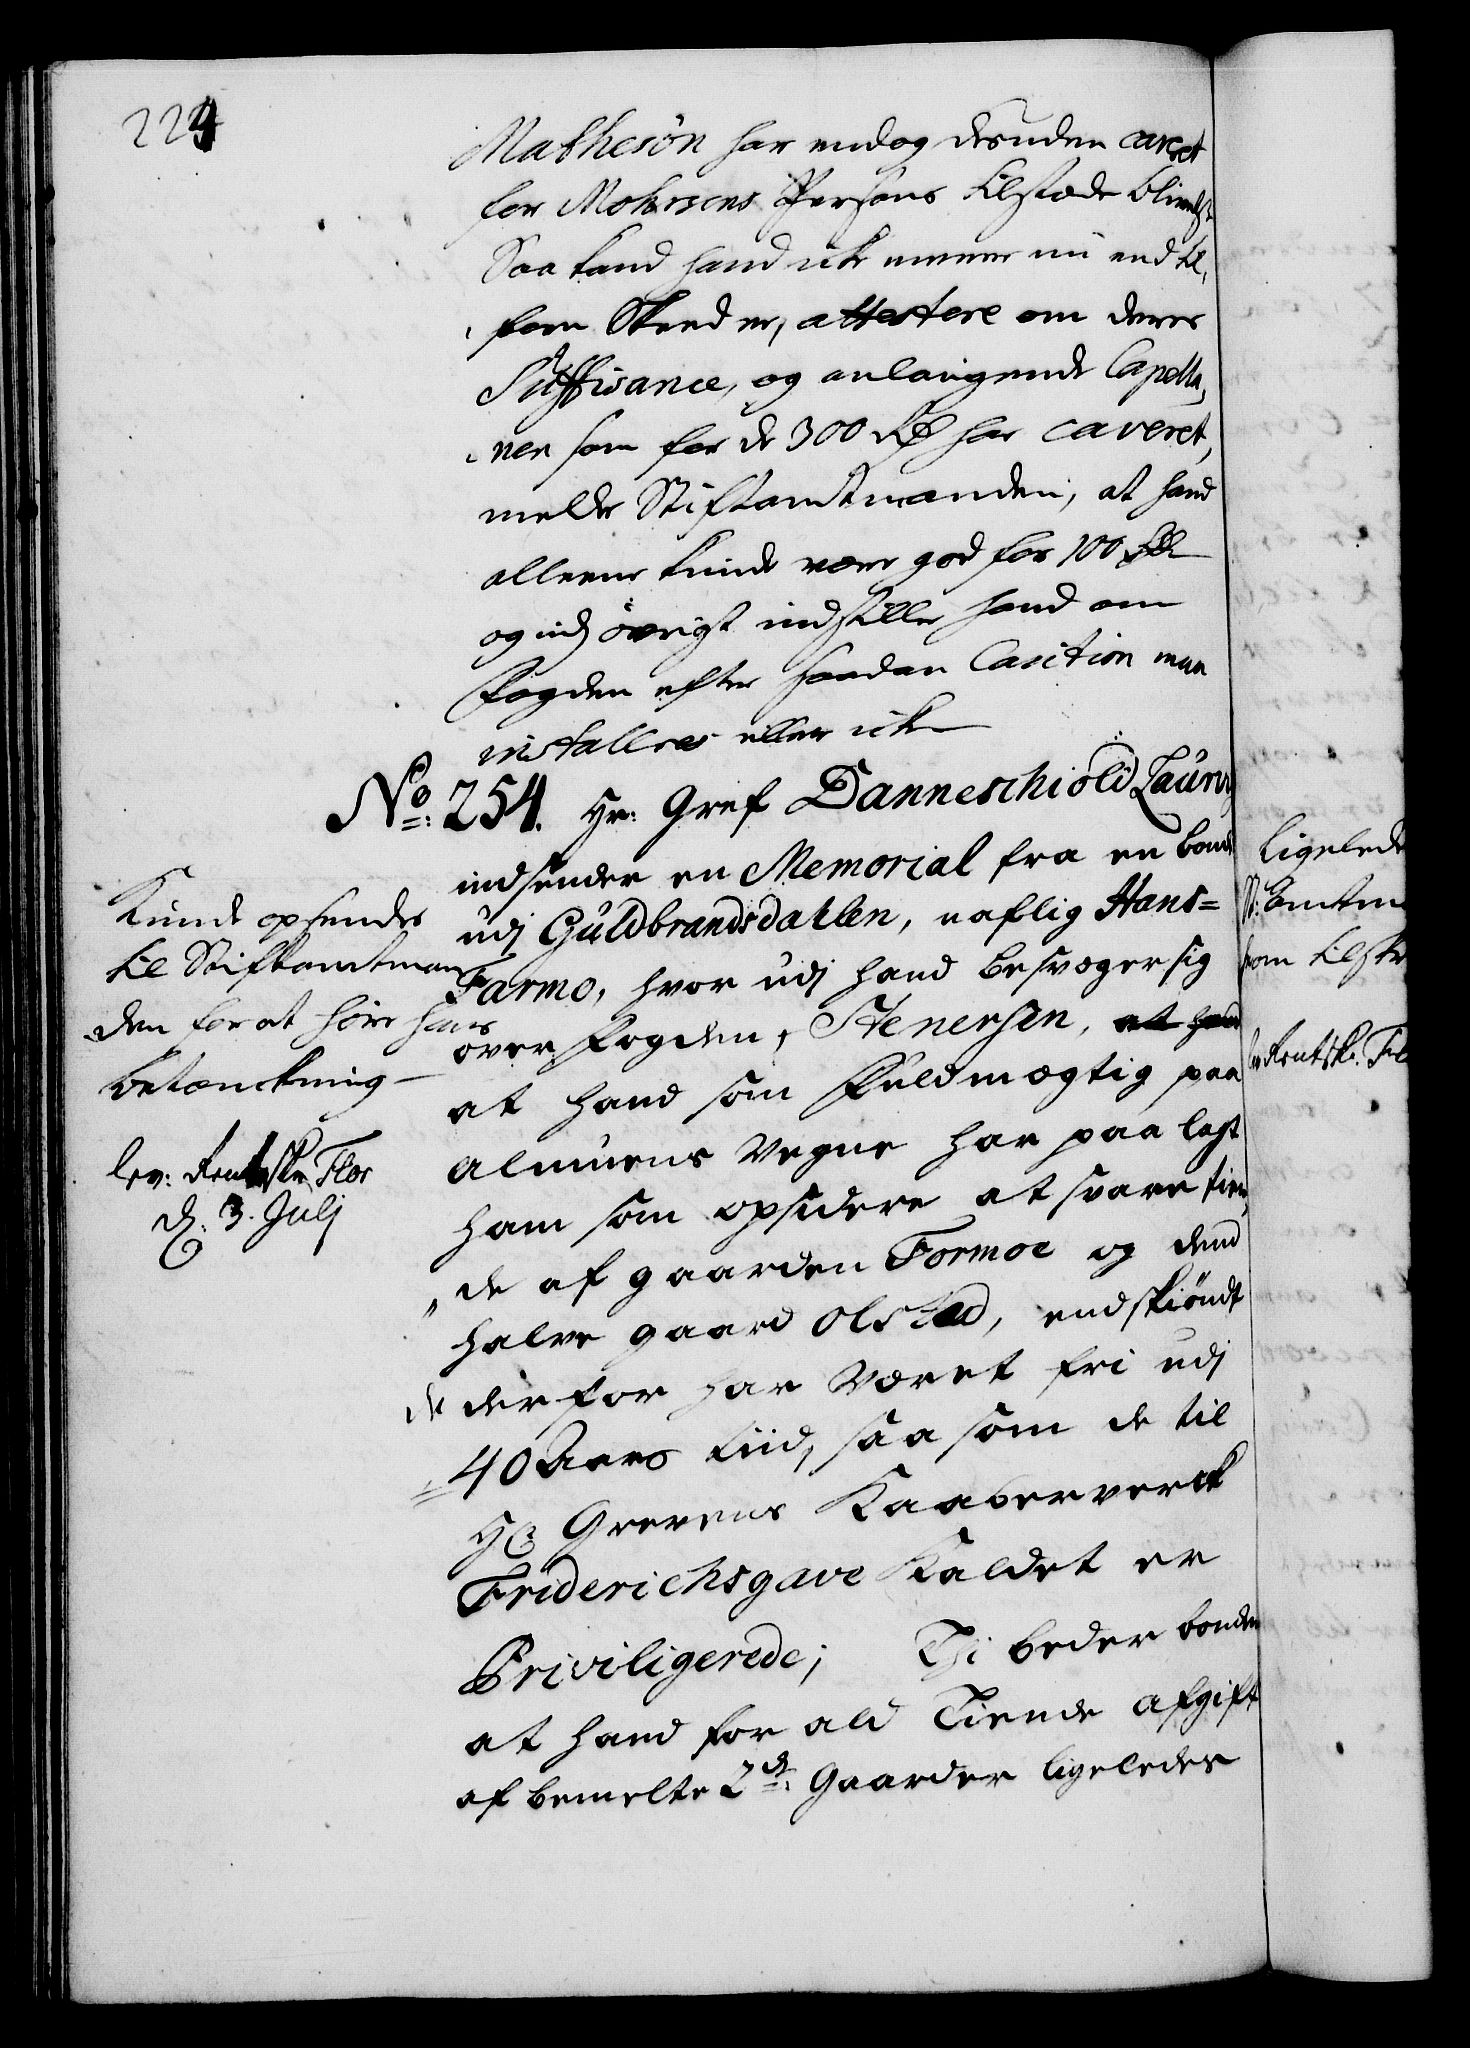 224
Mathesøn har endog desuden caveret
for Mohrsens Persons tilstæde blivelse
Saa kand hand icke meere nu end til,
,forn Skeed er, attestere om deres
Suffisance, og anlangende Capella,
,nen som for de 300 Rd har caveret,
melder Stiftamtmanden, at hand
alleene kunde være god for 100 Rd
og udj øvrigt indstiller hand om
fogden efter saadan Caution maa
installeres eller icke
No: 254. Hr: Gref Danneschiold Laurvig
indsender en Memorial fra en bonde
udj Guldbrandsdahlen, naflig Hans=
Farmo, hvor udj hand besværger sig
over fogden, Stenersen, at hand
at hand som Fuldmægtig paa
Almuens Vegne har paa lagt
ham som opsidere at svare tien,
,,de af gaarden Formoe og dend
halve gaard Olstad, endskiøndt
de derfor har været fri udj
40 Aars tiid, saa som de til
H: Grevens Kaaberverck
Friderichsgave kaldet er
Priviligerede; Thi beder bonden
at hand for ald Tiende afgift
af bemelte 2de: Gaarder ligeledes
Kunde opsendes
til Stiftamtman
den for at høre hans
betænckning
lev: Rentskr: Flor
d. 3. Julj
ligelede
St: Amtm
som tilstr
lev Rentskr. Fl